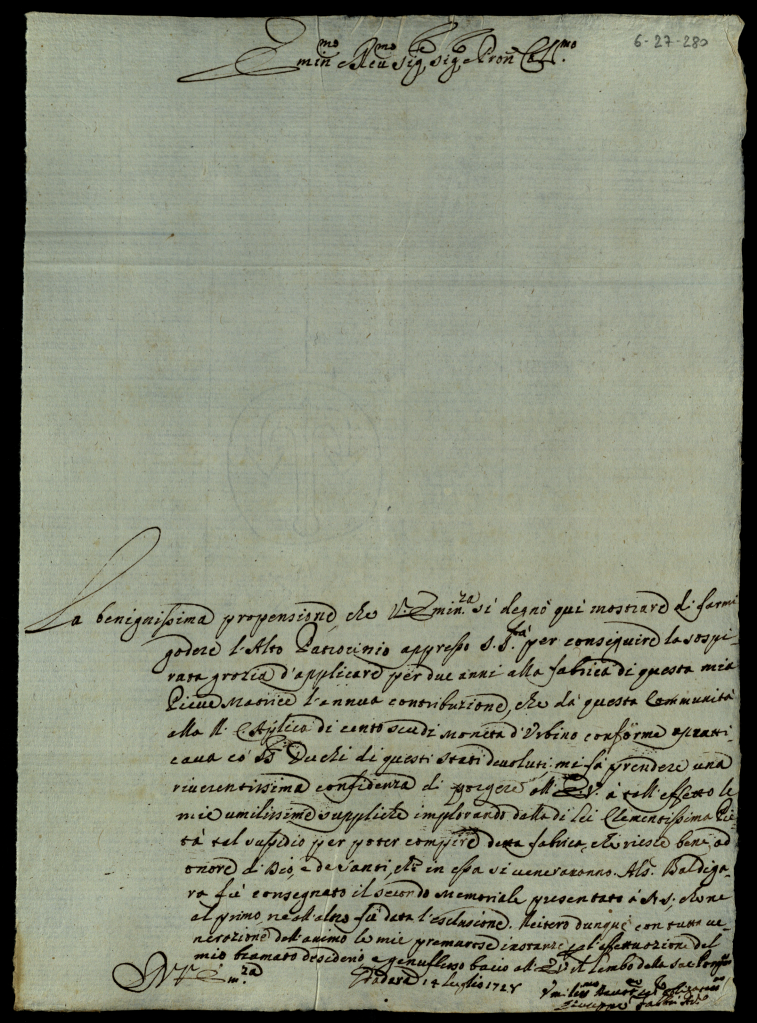 6-27-280
Emin.mo e Reu.mo Sig.re Sig.re e Pron Col.mo
La benignissima propensione che V. Emin.za si degnò qui mostrare di farmi
godere l'Alto Patrocinio appresso S. S.tà per conseguire la sospi-
rata grazia d'applicare per due anni alla fabrica di questa mia
Pieve Matrice l'annua contribuzione, che dà questa Communità
alla di cento scudi moneta d'Urbino conforme apratti-
cava cò Duchi di questi stati devoluti, mi fà prendere una
riverentissima confidenza di porgere all' E. V. à tall' effetto le
mie umilissime suppliche implorando dalla di lei Clementissima Pie-
tà tal sussidio per poter compire detta fabrica, che riesce bene, ad
onore di Dio, e de Santi, che in essa si veneraranno. Baldiga-
ra fù consegnato il secondo Memoriale presentato à S. S., che ne
al primo, ne all'altro fù data l'esclusione. Reitero dunque con tutta ve-
nerazione dell'animo le mie premurose instanze effettuazione del
mio bramato desiderio e genuflesso bacio all' E. V. il lembo della Sac.
V. Em.za
14 Luglio 1728
Umiliss.mo
Giuseppe Fabbri